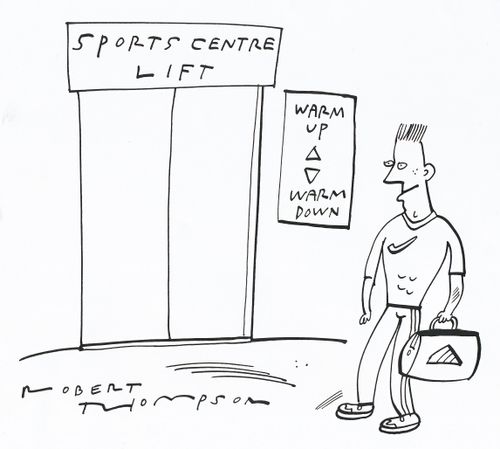 SPORTS CENTRE
LIFT
WARM
UP
WARM
DOWN
ROBERT
THOMPSON